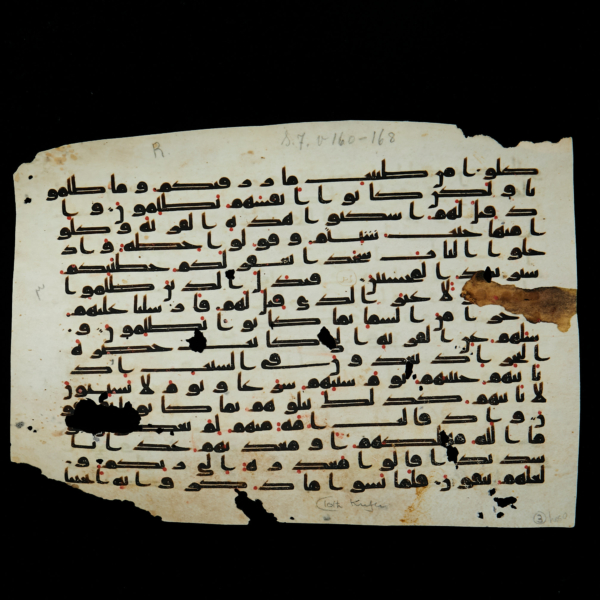 R
S. 7. v 160-168
كلوا من طيبت ما رزقنكم وما ظلمو
نا ولكن كانوا انفسهم يظلمون و ا
ذ قيل لهم اسكنوا هذه القرية وكلو
ا منها حيث شئتم وقولوا حطة واد
خلوا الباب سجدا نغفر لكم خطيتكم
سنزيد المحسنين فبدل الذين ظلموا
لا غير الذي قيل لهم فارسلنا عليهم
رجزا من السما بما كانوا يظلمون و
سلهم عن القرية التي كانت حضرة
البحر اذ يعدون في السبت اذ
تاتيهم حيتنهم يوم سبتهم شرعا ويوم لا يسبتون
لا تاتيهم كذلك نبلوهم بما كانوا
ن واذ قالت امة منهم لم
ما الله مهلكهم او معذبهم عذابا
شديدا قالوا معذرة الى ربكم و
لعلهم يتقون فلما نسوا ما ذكروا به انجينا